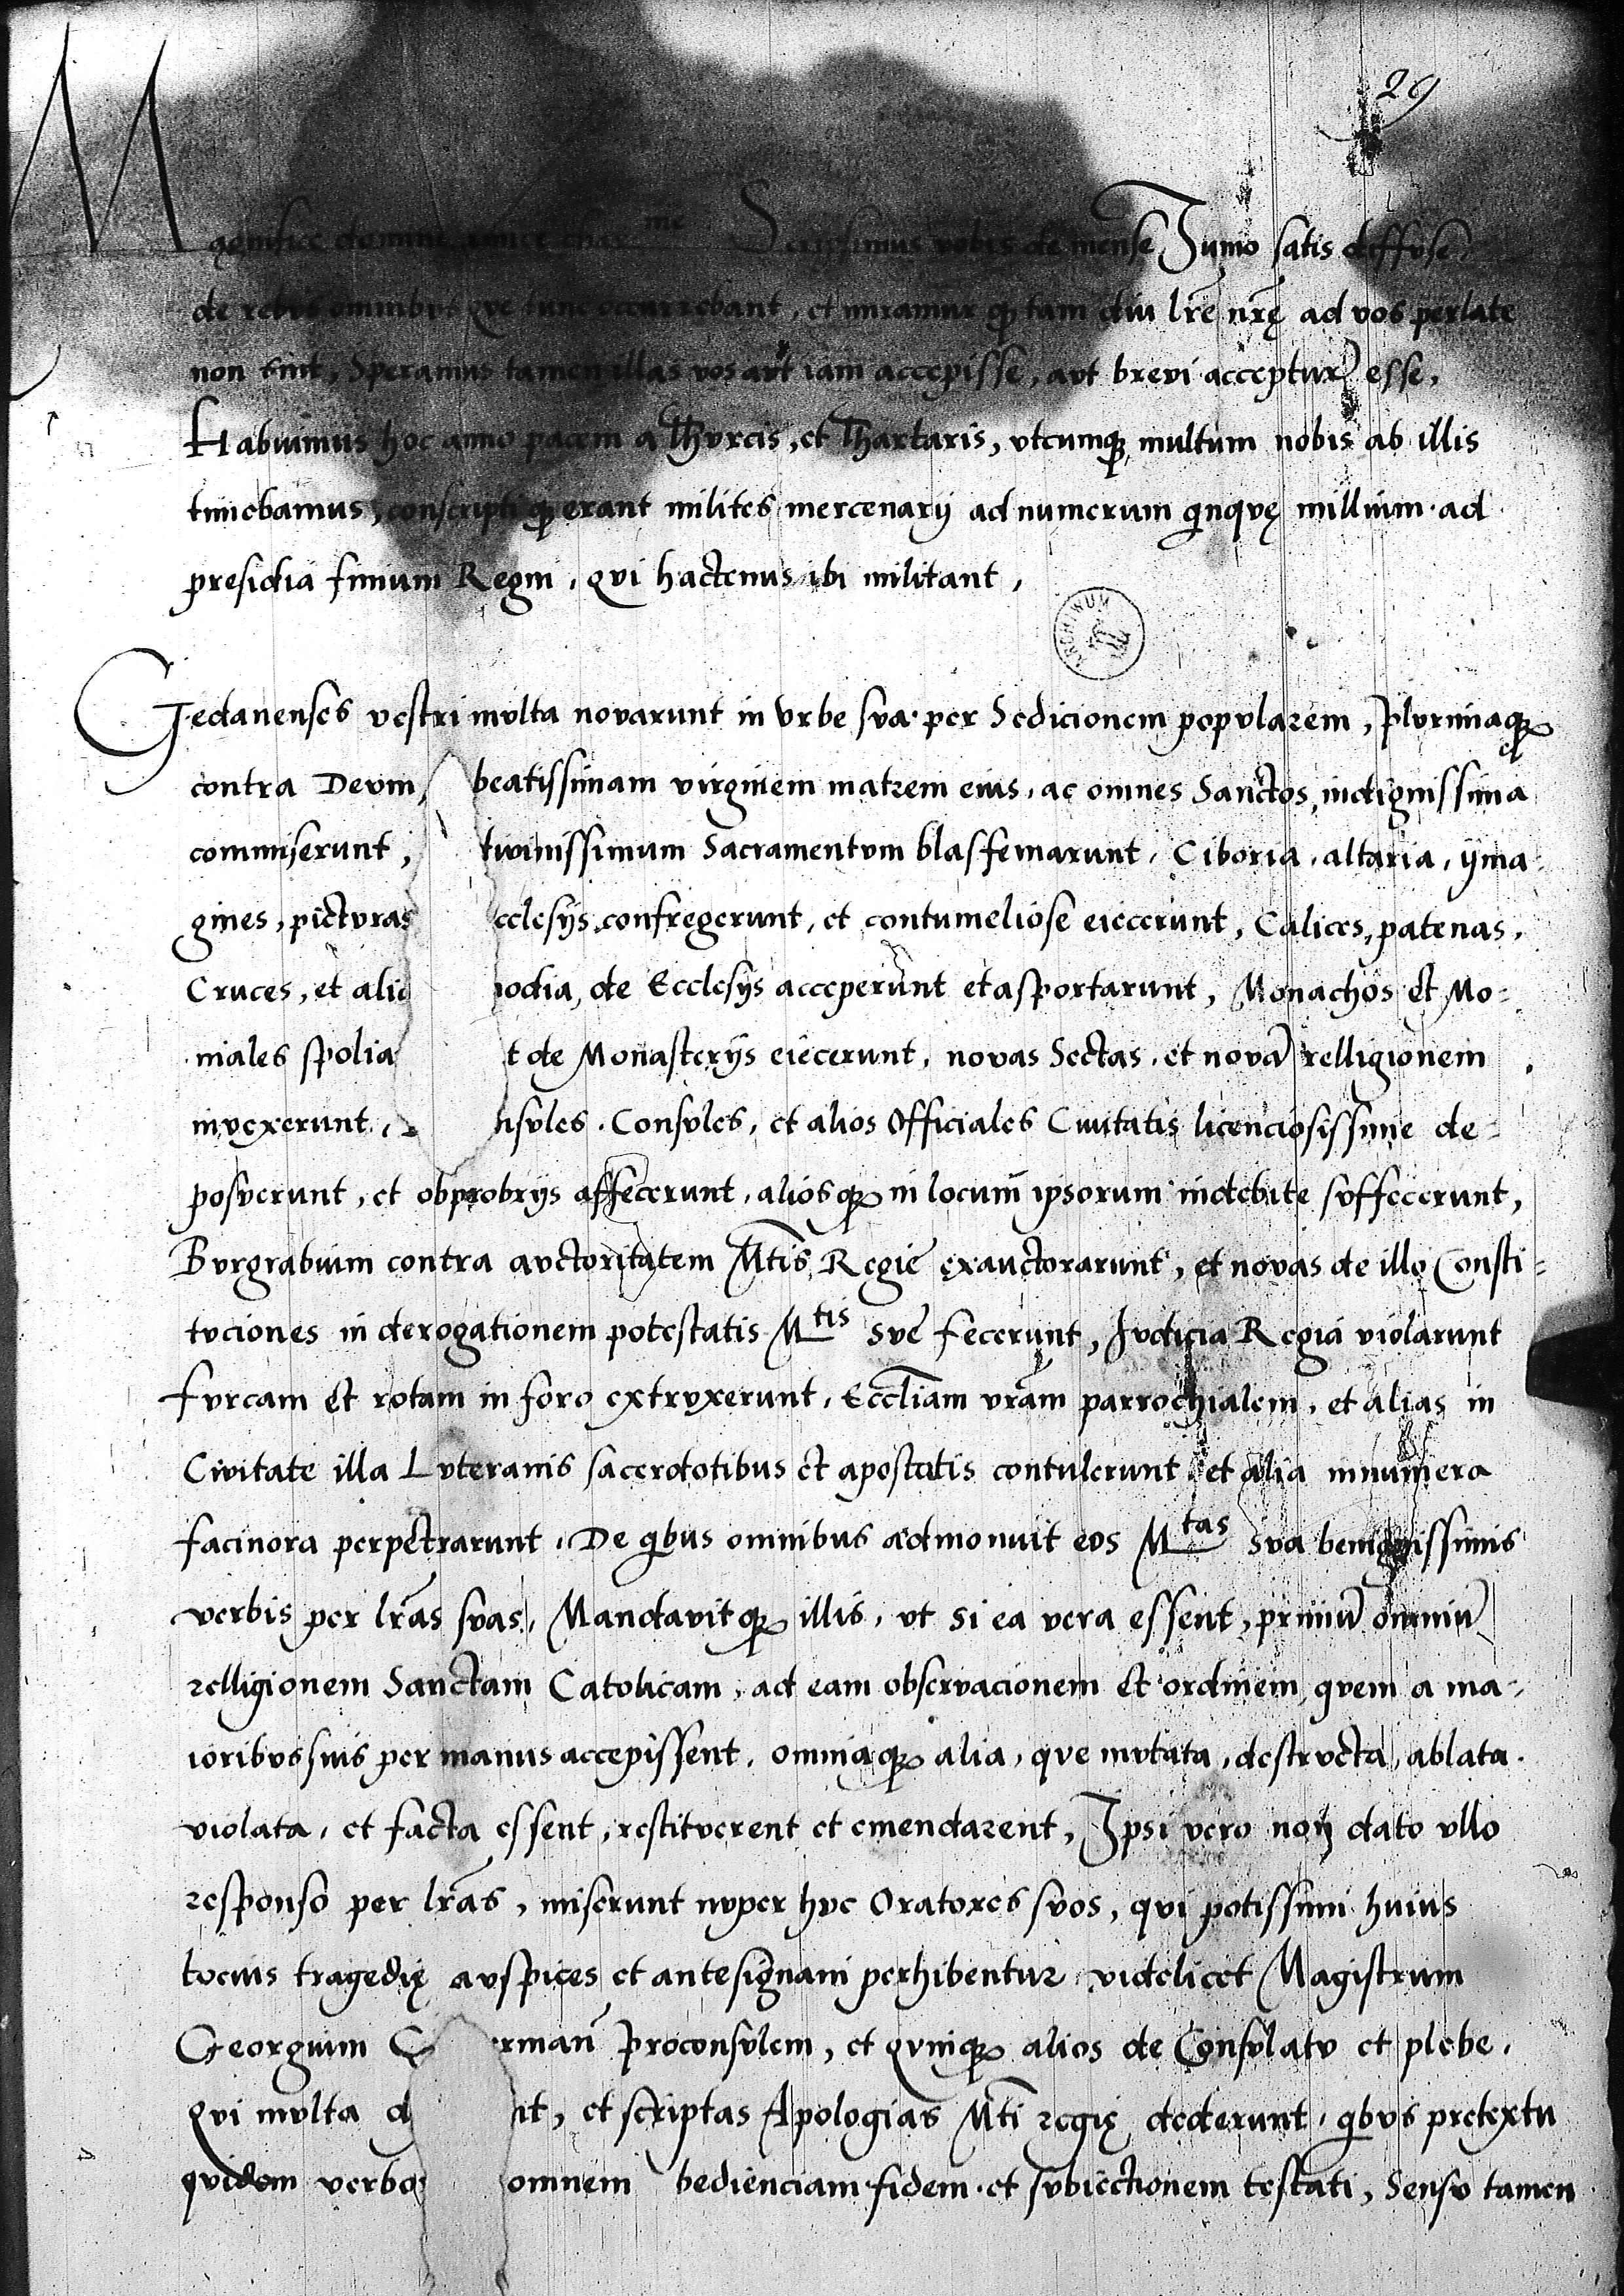 29
Magnifice domine amice char^me Scripsimus vobis de mense Junio satis diffvse,
de rebvs omnibvs qve tunc occurrebant, et miramur qp tam diu lr̃e nr̃ę ad vos perlate
non sint, Speramus tamen illas vos avt iam accepisse, avt brevi acceptur esse,
Habuimus hoc anno pacem a Thvrcis, et Thartaris, vtcumq multum nobis ab illis
timebamus, conscriptiq erant milites mercenarij ad numerum qinqvę millium ad
presidia finium Regni, qvi hactenus ibi militant,
ARCHIWUM
Gedanenses vestri mvlta novarunt in Vrbe sva per Sedicionem popvlarem, Plvrimaq
contra Devm, beatissimam virginem matrem eius, ac omnes Sanctos, indignissima
commiserunt, ivinissimum Sacramentvm blasfemarunt, Ciboria, altaria, ijma-
gines, pictvras cclesijs confregerunt, et contumeliose eiecerunt, Calices, patenas,
Cruces, et ali odia, de Ecclesijs acceperunt et asportarunt, Monachos et Mo-
niales spolia t de Monasterijs eiecerunt, novas Sectas, et novã relligionem
invexerunt, nsvles. Consvles, et alios Officiales Civitatis licenciosissime de-
posverunt, et obprobrijs affecerunt, aliosq in locum ipsorum indebite svffecerunt,
Bvrgrabium contra avctoritatem Mtis Regie exauctorarunt, et novas de illo Consti-
tvciones in derogationem potestatis M^tis Sve fecerunt, Jvdicia Regia violarunt
fvrcam et rotam in foro extrvxerunt, Eccliam vrãm parrochialem, et alias in
Civitate illa Lvteranis sacerdotibus et apostatis contulerunt, et alia innumera
facinora perpetrarunt, De qibus omnibus admonuit eos M^tas Sva benignissimis
verbis per lr̃as svas, Mandavitq illis, vt si ea vera essent, primũ omniũ
relligionem Sanctam Catolicam, ad eam observacionem et ordinem, qvem a ma-
ioribvs suis per manus accepissent, omniaq alia, qve mvtata, destrvcta, ablata,
violata, et facta essent, restitverent et emendarent, Ipsi vero non dato vllo
responso per lr̃as, miserunt nvper hvc Oratores svos, qvi potissimi huius
tocius tragedię avspices et antesignani perhibentur, videlicet Magistrum
Georgium rmañ Proconsvlem, et qvinq alios de Consvlatv et plebe,
Qvi mvlta d nt, et scriptas Apologias Mti regię dederunt, qibvs pretextu
qvidem verbo omnem bedienciam fidem et svbiectionem testati, Sensv tamen